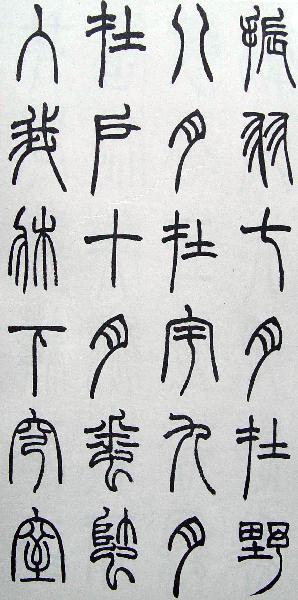 振羽七月在野
八月在宇九月
在戶十月蟋蟀
入我牀下穹窒